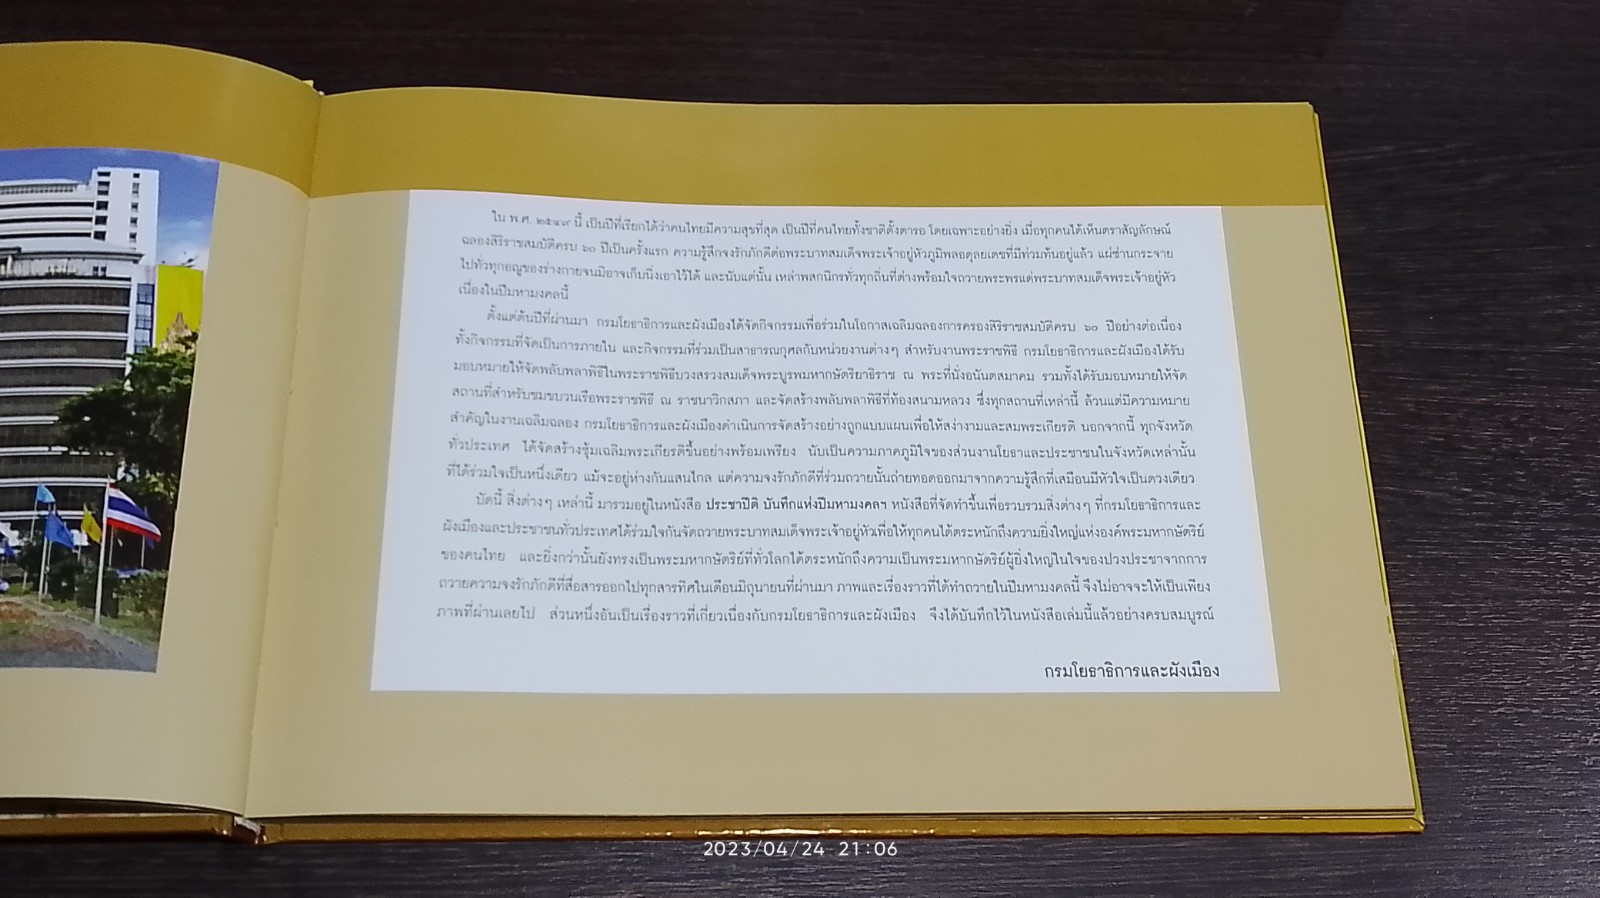 ใน พ.ศ. ๒๕๔๙ นี้ เป็นปีที่เรียกได้ว่าคนไทยมีความสุขที่สุด เป็นปีที่คนไทยทั้งชาติตั้งตารอ โดยเฉพาะอย่างยิ่ง เมื่อทุกคนได้เห็นตราสัญลักษณ์
ฉลองสิริราชสมบัติครบ ๖๐ ปีเป็นครั้งแรก ความรู้สึกจงรักภักดีต่อพระบาทสมเด็จพระเจ้าอยู่หัวภูมิพลอดุลยเดชที่มีท่วมท้นอยู่แล้ว แผ่ซ่านกระจาย
ไปทั่วทุกอณูของร่างกายจนมิอาจเก็บนิ่งเอาไว้ได้ และนับแต่นั้น เหล่าพสกนิกรทั่วทุกถิ่นที่ต่างพร้อมใจถวายพระพรแด่พระบาทสมเด็จพระเจ้าอยู่หัว
เนื่องในปีมหามงคลนี้
ตั้งแต่ต้นปีที่ผ่านมา กรมโยธาธิการและผังเมืองได้จัดกิจกรรมเพื่อร่วมในโอกาสเฉลิมฉลองการครองสิริราชสมบัติครบ ๖๐ ปีอย่างต่อเนื่อง
ทั้งกิจกรรมที่จัดเป็นการภายใน และกิจกรรมที่ร่วมเป็นสาธารณกุศลกับหน่วยงานต่างๆ สำหรับงานพระราชพิธี กรมโยธาธิการและผังเมืองได้รับ
มอบหมายให้จัดพลับพลาพิธีในพระราชพิธีบวงสรวงสมเด็จพระบูรพมหากษัตริยาธิราช ณ พระที่นั่งอนันตสมาคม รวมทั้งได้รับมอบหมายให้จัด
สถานที่สำหรับชมขบวนเรือพระราชพิธี ณ ราชนาวิกสภา และจัดสร้างพลับพลาพิธีที่ท้องสนามหลวง ซึ่งทุกสถานที่เหล่านี้ ล้วนแต่มีความหมาย
สำคัญในงานเฉลิมฉลอง กรมโยธาธิการและผังเมืองดำเนินการจัดสร้างอย่างถูกแบบแผนเพื่อให้สง่างามและสมพระเกียรติ นอกจากนี้ ทุกจังหวัด
ทั่วประเทศ ได้จัดสร้างซุ้มเฉลิมพระเกียรติขึ้นอย่างพร้อมเพรียง นับเป็นความภาคภูมิใจของส่วนงานโยธาและประชาชนในจังหวัดเหล่านั้น
ที่ได้ร่วมใจเป็นหนึ่งเดียว แม้จะอยู่ห่างกันแสนไกล แต่ความจงรักภักดีที่ร่วมถวายนั้นถ่ายทอดออกมาจากความรู้สึกที่เสมือนมีหัวใจเป็นดวงเดียว
บัดนี้ สิ่งต่างๆ เหล่านี้ มารวมอยู่ในหนังสือ ประชาปีติ บันทึกแห่งปีมหามงคลฯ หนังสือที่จัดทำขึ้นเพื่อรวบรวมสิ่งต่างๆ ที่กรมโยธาธิการและ
ผังเมืองและประชาชนทั่วประเทศได้ร่วมใจกันจัดถวายพระบาทสมเด็จพระเจ้าอยู่หัวเพื่อให้ทุกคนได้ตระหนักถึงความยิ่งใหญ่แห่งองค์พระมหากษัตริย์
ของคนไทย และยิ่งกว่านั้นยังทรงเป็นพระมหากษัตริย์ที่ทั่วโลกได้ตระหนักถึงความเป็นพระมหากษัตริย์ผู้ยิ่งใหญ่ในใจของปวงประชาจากการ
ถวายความจงรักภักดีที่สื่อสารออกไปทุกสารทิศในเดือนมิถุนายนที่ผ่านมา ภาพและเรื่องราวที่ได้ทำถวายในปีมหามงคลนี้ จึงไม่อาจจะให้เป็นเพียง
ภาพที่ผ่านเลยไป ส่วนหนึ่งอันเป็นเรื่องราวที่เกี่ยวเนื่องกับกรมโยธาธิการและผังเมือง จึงได้บันทึกไว้ในหนังสือเล่มนี้แล้วอย่างครบสมบูรณ์
กรมโยธาธิการและผังเมือง
2023/04/24 21:06